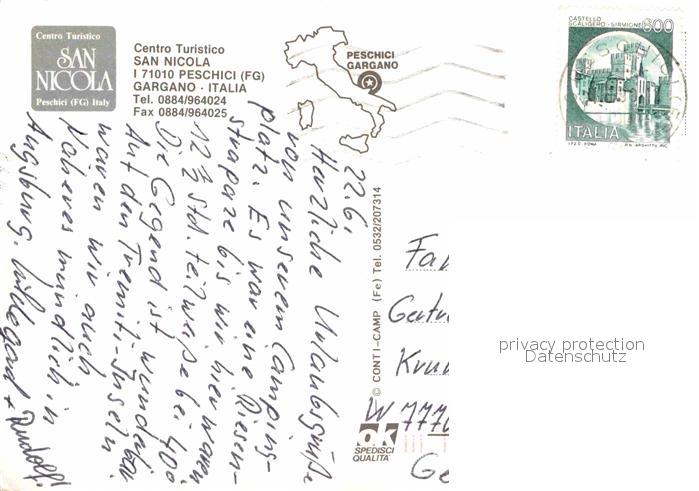 Centro Turistico
SAN
NICOLA
Peschici (FG) Italy
Centro Turistico
SAN NICOLA
I 71010 PESCHICI (FG)
GARGANO - ITALIA
Tel. 0884/964024
Fax 0884/964025
PESCHICI
GARGANO
CASTELLO
SCALIGERO - SIRMIONE
600
ITALIA
I.P.Z.S. ROMA
22.6.
Herzliche Urlaubsgrüße
von unserem Camping-
platz. Es war eine Riesen-
strapaze bis wir hier waren.
12 ½ Std. teilweise bei 40°
Die Gegend ist wunderbar.
Auf den Tremiti-Inseln
waren wir auch
Näheres mündlich in
Augsburg. Hildegard + Rudolf
© CONTI-CAMP (Fe) Tel. 0532/207314
Fa
Gertr
Kru
W 777
Ge
ok
SPEDISCI
QUALITA'
privacy protection
Datenschutz